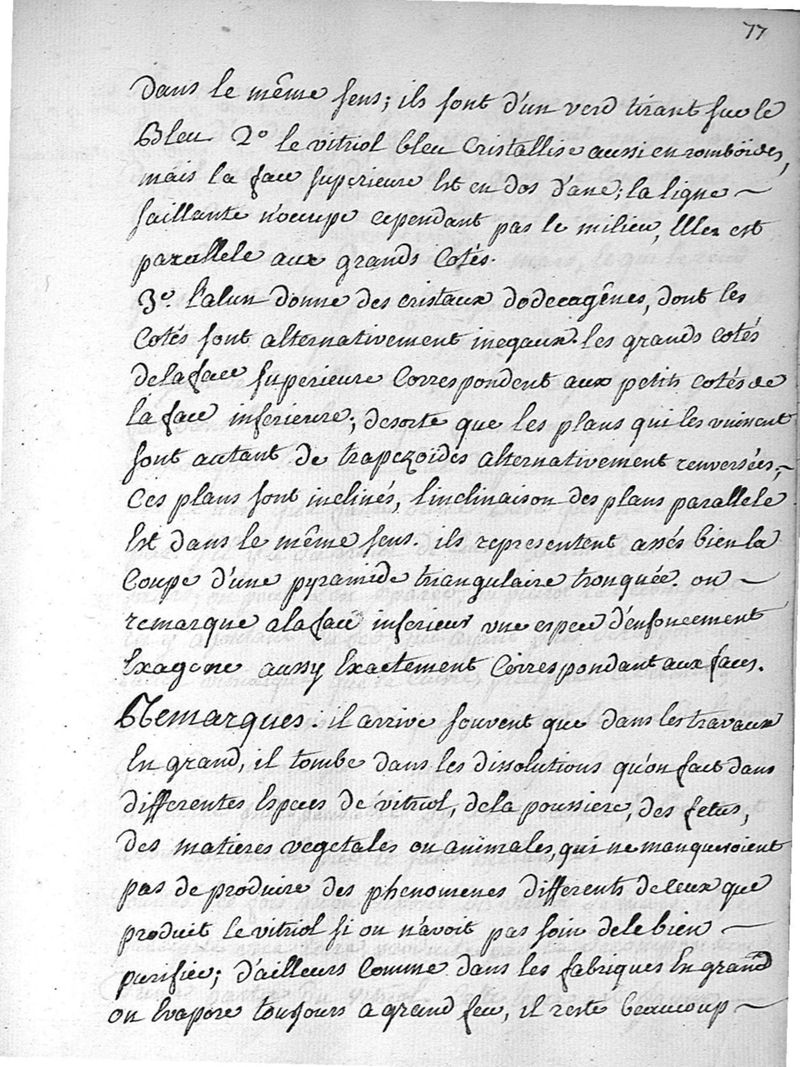 77
dans le même sens; ils sont d'un verd tirant sur le
Bleu 2° le vitriol bleu cristallise aussi en romböides,
mais la face superieure Est en dos d'ane; la ligne ~
saillante n'occupe cependant pas le milieu, Elle est
parallele aux grands Cotés.
3e. l'alun donne des cristaux dodecagênes, dont les
Cotés sont alternativement inegaux. les grands cotés
de la face superieure Correspondent aux petits cotés de
la face inferieure; desorte que les plans qui les vnissent
sont autant de trapezoïdes alternativement renversées, ~
Ces plans sont inclinés, l'inclinaison des plans parallele
Est dans le même sens. ils representent assés bien la
Coupe d'une pyramide triangulaire tronquée. on ~
remarque a la face inferieur vne espece d'enfoncement
Exagone aussy Exactement Correspondant aux faces.
Remarques. il arrive souvent que dans les travaux
En grand, il tombe dans les dissolutions qu'on fait dans
differentes Especes de vitriol, de la poussiere, des fetus,
des matieres vegetales ou animales, qui ne manqueroient
pas de produire des phenomenes differents de ceux que
produit le vitriol si on n'avoit pas soin de le bien ~
purifier; d'ailleurs Comme dans les fabriques En grand
on Evapore toujours a grand feu, il reste beaucoup ~